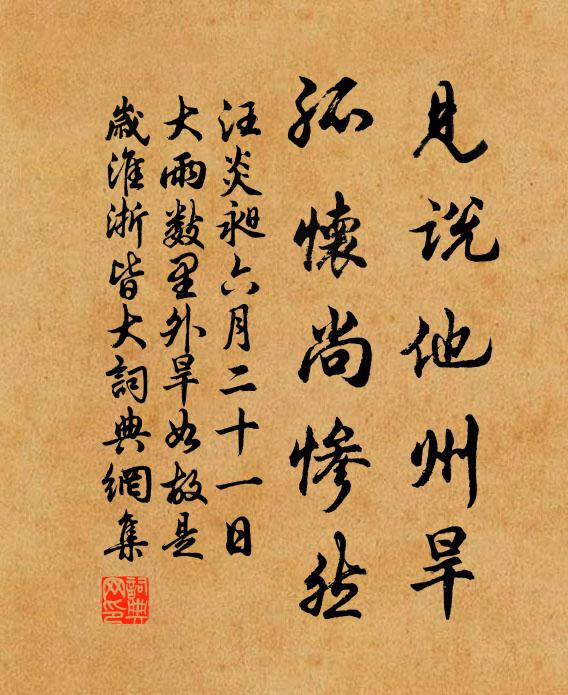 見说他州旱
孤懷尚惨然
汪炎昶六月二十一日
大雨数里外旱如故是
歲淮浙皆大詞典網集
詞典
网印